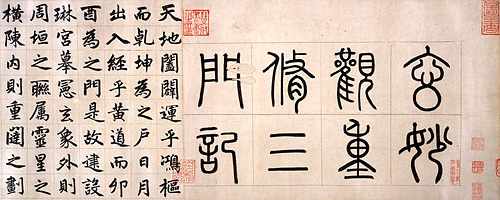 玄妙
觀重
脩三
門記
天地闔闢運乎鴻樞
而乾坤為之戶日月
出入經乎黃道而卯
酉為之門是故建設
琳宮摹憲玄象外則
周垣之聯属靈星之
橫陳内則重闥之劃